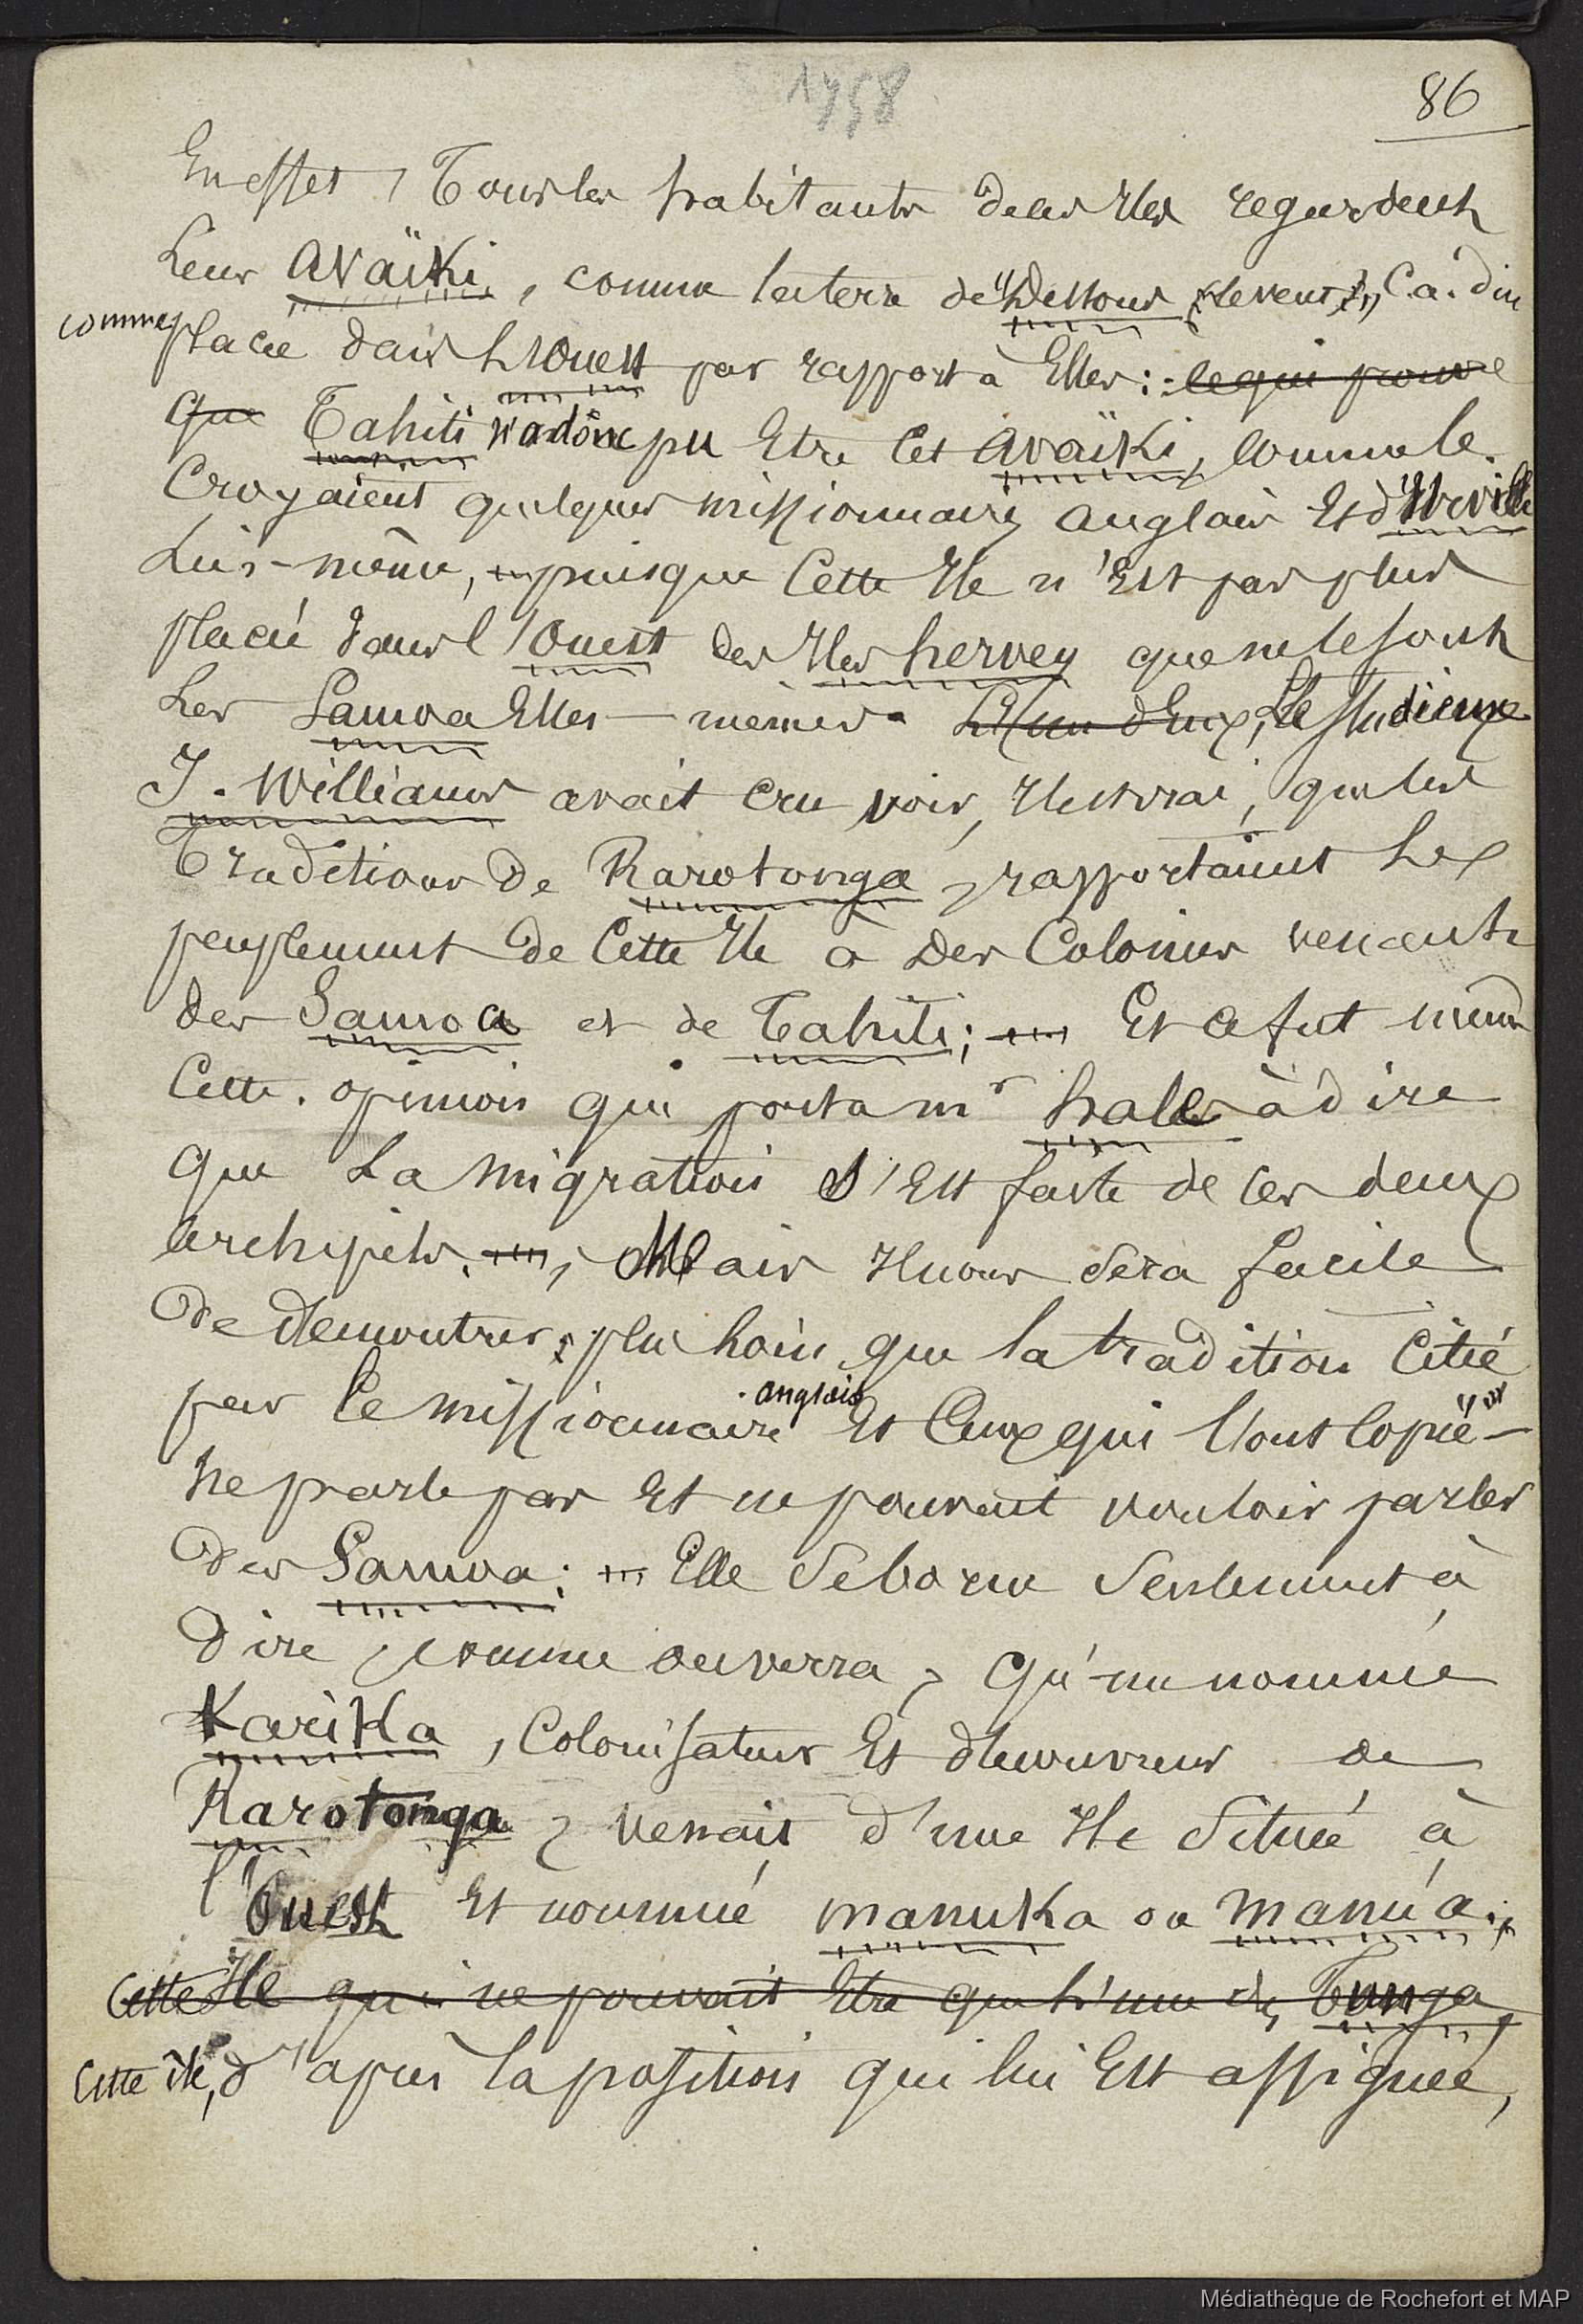 1458
86
En effet, Tous les habitants de ces Iles regardent
leur Avaïki, comme la terre de "Dessous le vent", C. à. dire
comme placée dans L'Ouest par rapport à Elles: ce qui prouve
que Tahiti n'a donc pu Etre Cet Avaïki, comme le
Croyaient quelques missionnaires anglais Et d'Urville
Lui-même, puisque Cette Ile n'Est pas plus
placée dans l'Ouest des Iles hervey que ne le sont
Les Samoa Elles-mêmes. L'un d'Eux, Le studieux
J. Williams avait cru voir, Il est vrai, que les
Traditions de Rarotonga, rapportaient Le
peuplement de Cette Ile à Des Colonies venant
des Samoa et de Tahiti; Et ce fut même
Cette opinion qui porta mr hale à dire
que La migration s'Est faite de ces deux
archipels. Mais Il nous sera facile
De démontrer plus loin que la tradition Citée
par le missionnaire anglais Et Ceux qui l'ont copié
ne parle pas Et ne pouvait vouloir parler
des Samoa: Elle se borne seulement à
Dire, comme on verra, qu'un nommé
Karika, Colonisateur Et découvreur de
Rarotonga, venait d'une Ile située à
l'Ouest Et nommée manuka ou manu'a;
Cette Ile qui ne pouvait Etre que l'une des Tonga,
Cette île, d'après la position qui lui Est assignée,
Médiathèque de Rochefort et MAP